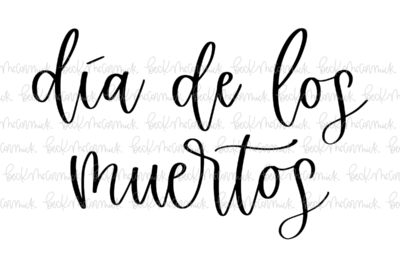 día de los
muertos